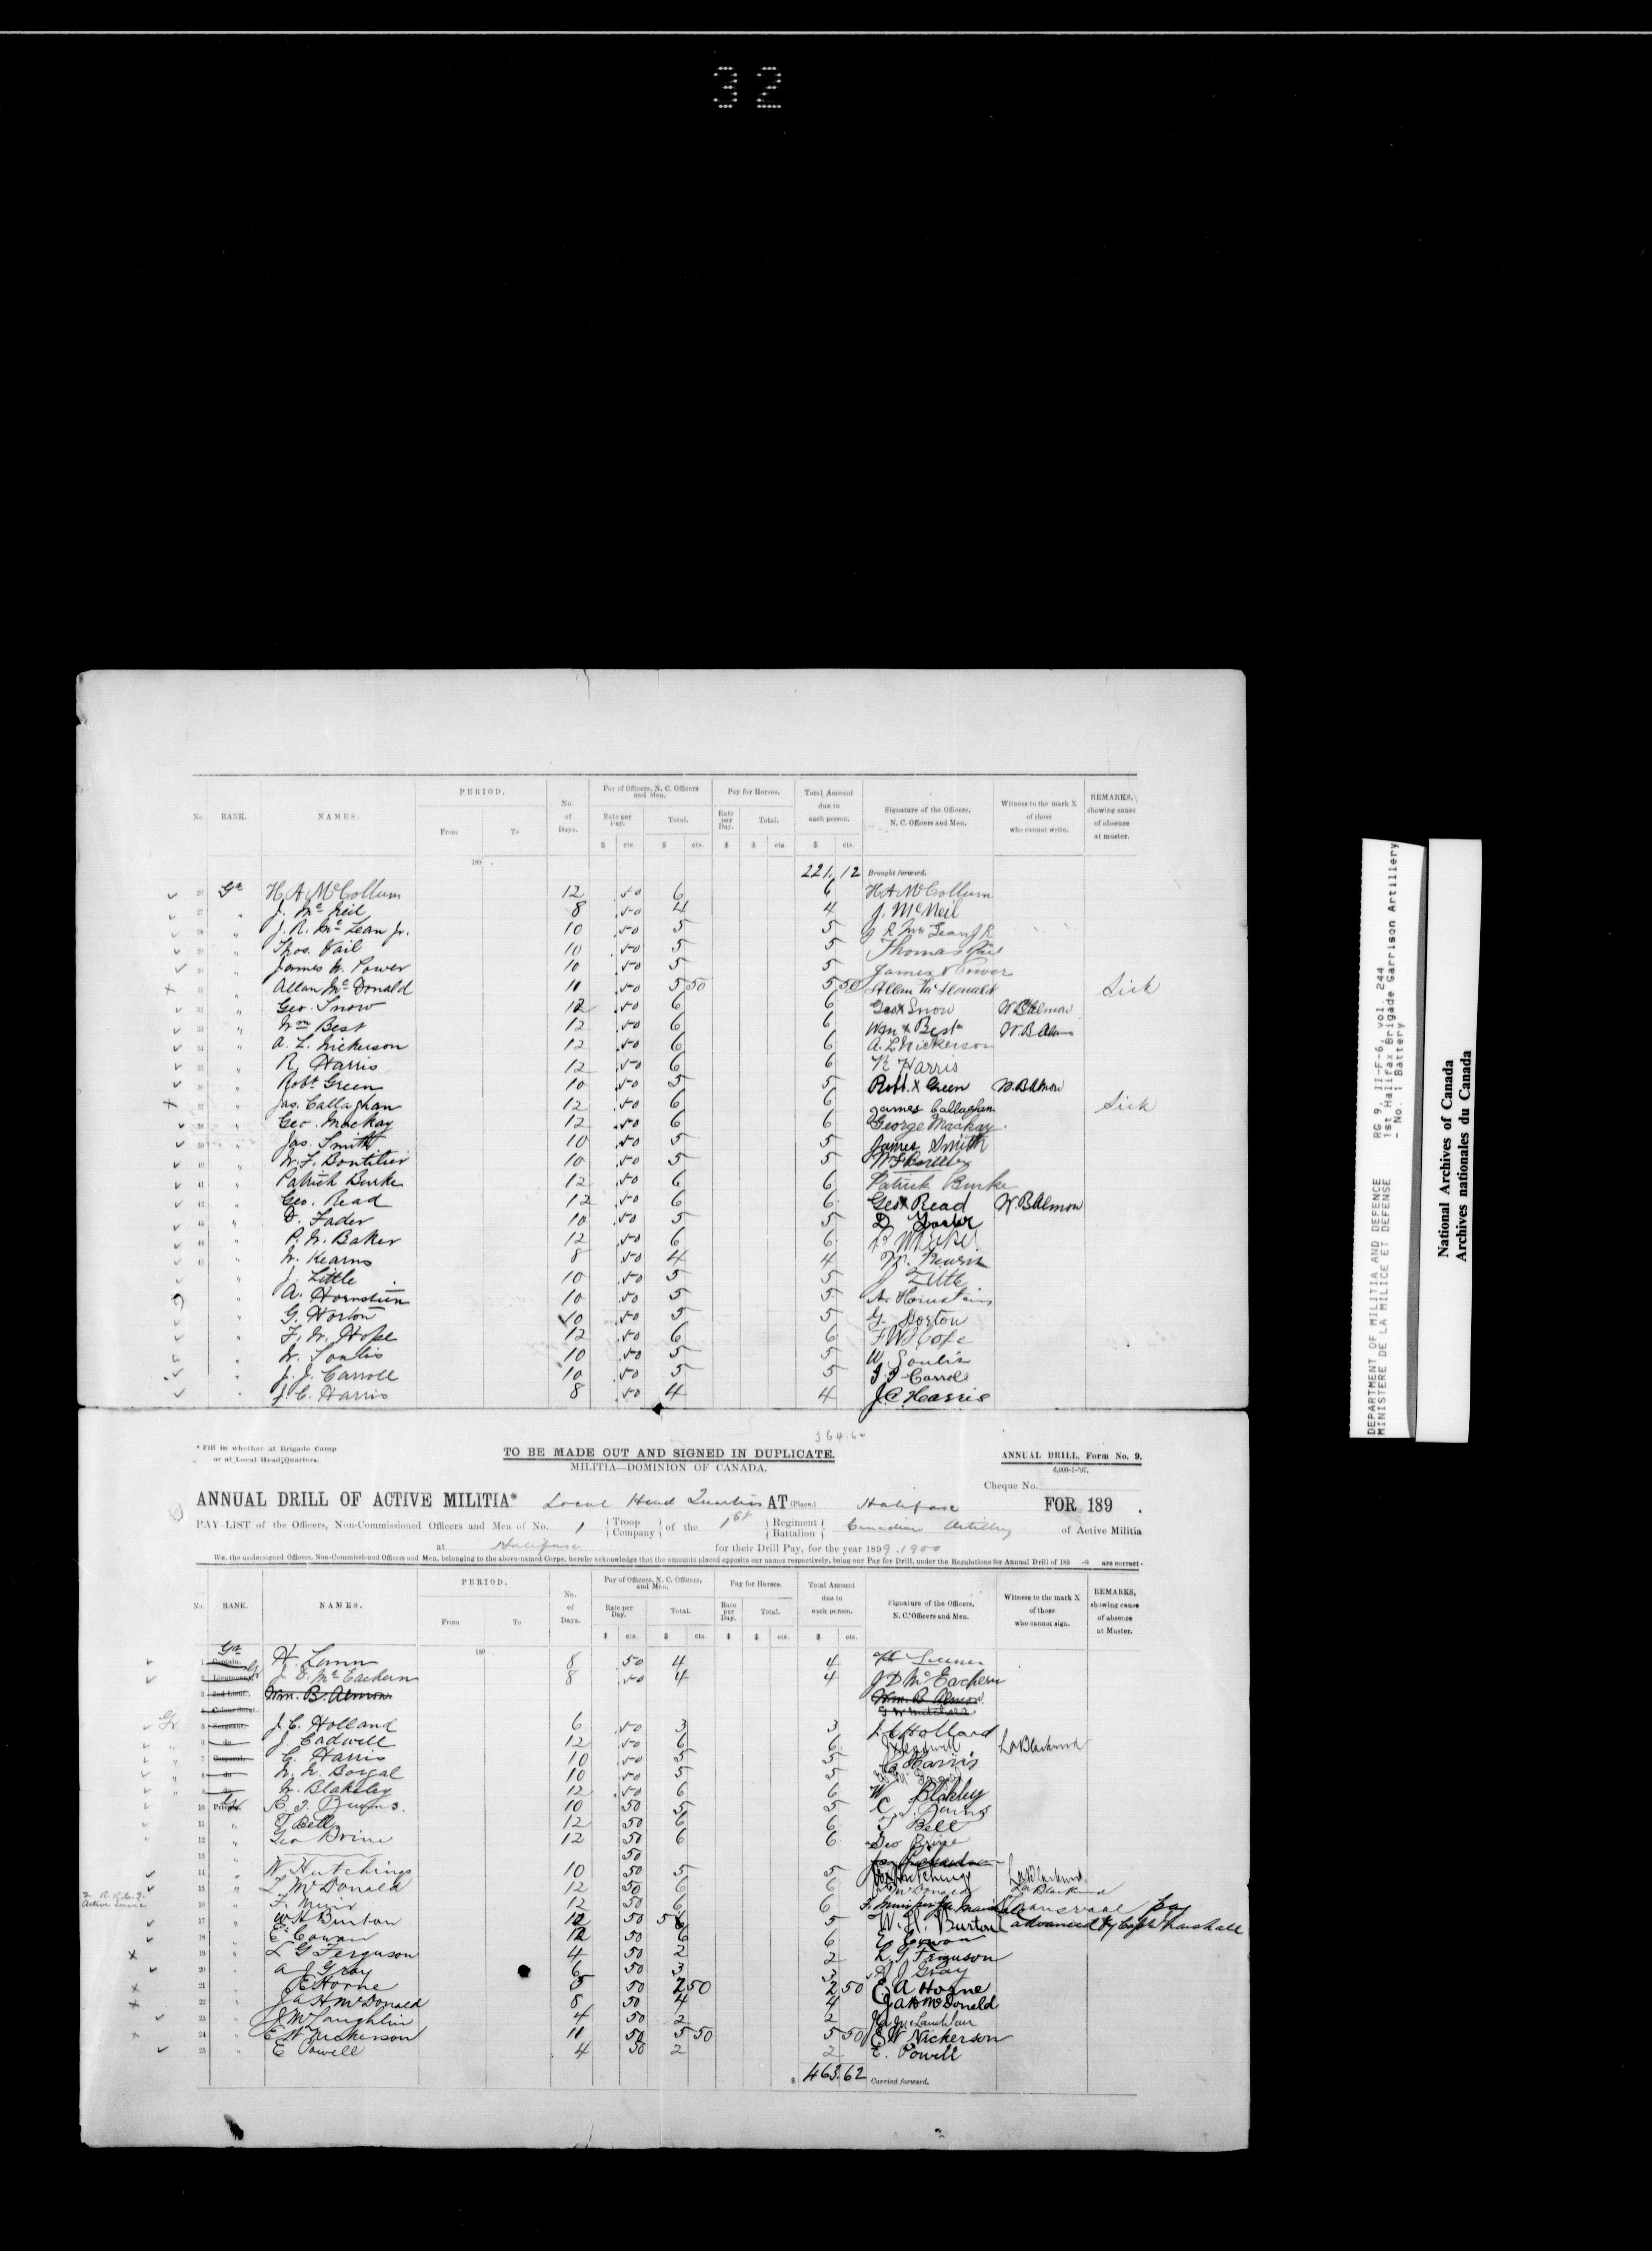 32
No. RANK. NAMES. PERIOD. From To No. of Days. Pay of Officers, N. C. Officers and Men. Rate per Day. $ cts. Total. $ cts. Pay for Horses. Rate per Day. $ Total. $ cts. Total Amount due to each person. $ cts. Signature of the Officers, N. C. Officers and Men. Witness to the mark X of those who cannot write. REMARKS, showing cause of absence at muster.
189 .
221.12 Brought forward.
26 Gr H. A. McCollum 12 .50 6 6 H A McCollum
27 " J. McNeil 8 .50 4 4 J. McNeil
28 " J. R. McLean Jr. 10 .50 5 5
29 " Thos. Vail 10 .50 5 5 Thomas Vail
30 " James W. Power 10 .50 5 5 James Power
31 " Allan McDonald 11 .50 5 50 5 50 Allan McDonald Sick
32 " Geo. Snow 12 .50 6 6 Geo X Snow W. B. Almon
33 " Wm Best 12 .50 6 6 Wm X Best W. B. Almon
34 " A. L. Nickerson 12 .50 6 6 A. L Nickerson
35 " R. Harris 12 .50 6 6 R Harris
36 " Robt Green 10 .50 5 5 Robt. X Green W. B Almon
37 " Jas. Callaghan 12 .50 6 6 James Callaghan Sick
38 " Geo. Mackay 12 .50 6 6 George Mackay
39 " Jas. Smith 10 .50 5 5 James Smith
40 " W. F. Bontilier 10 .50 5 5
41 " Patrick Burke 12 .50 6 6 Patrick Burke
42 " Geo. Read 12 .50 6 6 Geo X Read W. B Almon
43 " D. Fader 10 .50 5 5 D Fader
44 " P. W. Baker 12 .50 6 6
45 " W. Kearns 8 .50 4 4
" J. Little 10 .50 5 5 J Little
" A. Hornstein 10 .50 5 5 A. Hornstein
" G. Horton 10 .50 5 5 G. Horton
" F. W. Hope 12 .50 6 6 F W Hope
" W. Soulis 10 .50 5 5 W. Soulis
" J. J. Carroll 10 .50 5 5 J. J. Carroll
" J. C. Harris 8 .50 4 4 J. C. Harris
* Fill in whether at Brigade Camp or at Local Head Quarters.
TO BE MADE OUT AND SIGNED IN DUPLICATE.
MILITIA—DOMINION OF CANADA.
ANNUAL DRILL, Form No. 9.
6,000-1-'97.
Cheque No.
ANNUAL DRILL OF ACTIVE MILITIA* Local Head Quarters AT (Place.) Halifax FOR 189 .
PAY-LIST of the Officers, Non-Commissioned Officers and Men of No. 1 Troop Company of the 1st Regiment Battalion Canadian Artillery of Active Militia
at Halifax for their Drill Pay, for the year 1899.1900
We, the undersigned Officers, Non-Commissioned Officers and Men, belonging to the above-named Corps, hereby acknowledge that the amounts placed opposite our names respectively, being our Pay for Drill, under the Regulations for Annual Drill of 189 -9 are correct.
No. RANK. NAMES. PERIOD. From To No. of Days. Pay of Officers, N. C. Officers, and Men. Rate per Day. $ cts. Total. $ cts. Pay for Horses. Rate per Day. $ Total. $ cts. Total Amount due to each person. $ cts. Signature of the Officers, N. C. Officers and Men. Witness to the mark X of those who cannot sign. REMARKS, showing cause of absence at Muster.
189
1 Captain. Gr 8 50 4 4
2 Lieutenant. Gr J. D. McEachern 8 .50 4 4 J D McEachern
3 2nd Lieut. Wm. B. Almon Wm. B Almon
4 Colour Sergt.
5 Sergeant. J. C. Holland 6 .50 3 3 J. C Holland
6 do J. Cadwell 12 .50 6 6 J Cadwell
7 Corporal. C. Harris 10 .50 5 5 C Harris
8 do 10 50 5 5
9 do W. Blakeley 12 .50 6 6 W Blakley
10 Private. 10 50 5 5
11 " T Bell 12 50 6 6 T Bell
12 " Geo Brine 12 50 6 6 Geo Brine
13 " 50
14 " W Hutchings 10 50 5 5
15 " L McDonald 12 50 6 6
16 " F. Muir 12 50 6 6 Transvaal pay
17 " W H Burton 12 50 5 W. H. Burton advanced by Capt Marshall
18 " E. Cowan 12 50 6 6 E Cowan
19 " L G Ferguson 4 50 2 2 L. G Ferguson
20 " A J Gray 6 50 3 3 A J Gray
21 " E Horne 5 50 2 50 2 50 E. A Horne
22 " J A H McDonald 8 50 4 4 J A H McDonald
23 " J McLaughlin 4 50 2 2
24 " E W Nickerson 11 50 5 50 5 50 E W Nickerson
25 " E Powell 4 50 2 2 E. Powell
$ 463.62 Carried forward.
DEPARTMENT OF MILITIA AND DEFENCE
MINISTERE DE LA MILICE ET DEFENSE
RG 9, II-F-6, vol. 244
1st Halifax Brigade Garrison Artillery
- No. 1 Battery
National Archives of Canada
Archives nationales du Canada